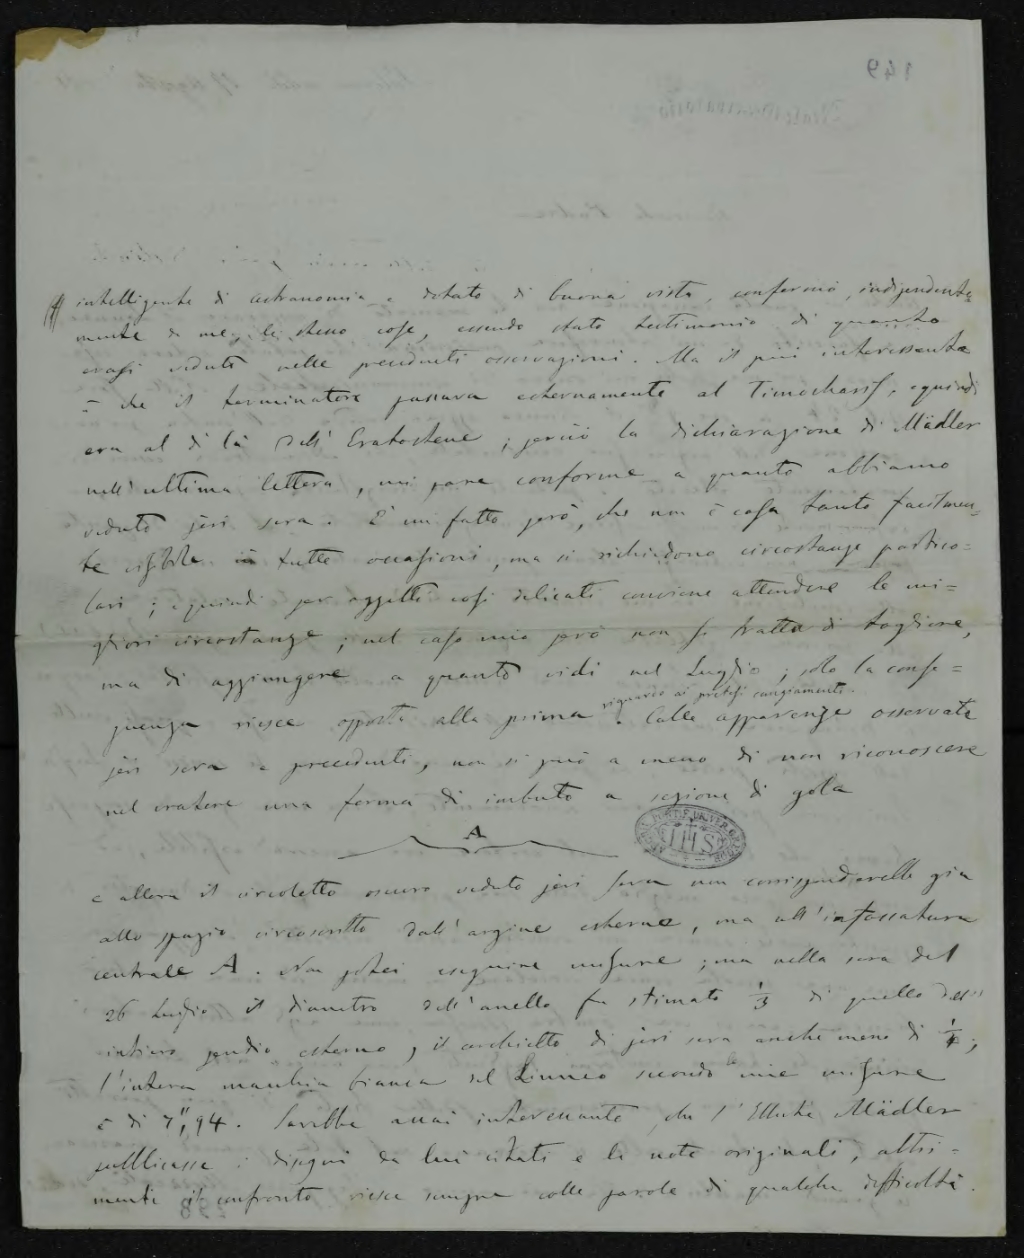 149
intelligente di astronomia e dotato di buona vista, confermò, indipendente
mente da me, le stesse cose, essendo stato testimonio di quanto
erasi veduto nelle precedenti osservazioni. Ma il più interessante
è che il terminatore passava esternamente al Timocharis, e quindi
era al di là dell' Eratostene; perciò la dichiarazione di Mädler
nell' ultima lettera, mi pare conforme a quanto abbiamo
veduto jeri sera. È un fatto però, che non è cosa tanto facilmen-
te visibile in tutte occasioni, ma si richiedono circostanze partico=
lari; e quindi per oggetti così delicati conviene attendere le mi=
gliori circostanze; nel caso mio però non si tratta di togliere,
ma di aggiungere a quanto vidi nel Luglio; solo la conse=
guenza riesce opposta alla prima riguardo ai pretesi cangiamenti. Colle apparenze osservate
jeri sera e precedenti, non si può a meno di non riconoscere
nel cratere una forma di imbuto a sezione di gola
A
e allora il circoletto oscuro veduto jeri sera non corrisponderebbe già
allo spazio circoscritto dall' argine esterno, ma all' infossatura
centrale A. Non potei eseguire misure; ma nella sera del
26 Luglio il diametro dell' anello fu stimato 1/3 di quello dell'
intiero pendio esterno, il cerchietto di jeri sera anche meno di 1/4;
l'intera macchia bianca del Linneo secondo le mie misure
è di 7",94. Sarebbe assai interessante, che l'Illustre Mädler
pubblicasse i disegni da lui citati e le note originali, altri=
menti il confronto riesce sempre colle parole di qualche difficoltà.
298
IHS